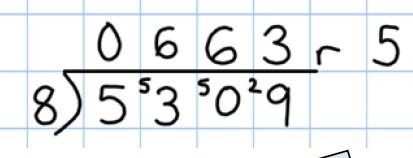 0 6 6 3 r 5
8)5 ⁵3 ⁵0 ²9